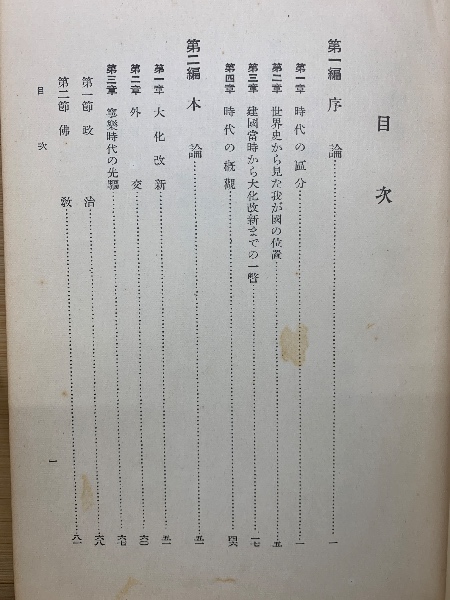 目次
第一編 序論……一
第一章 時代の區分……一
第二章 世界史から見た我が國の位置……五
第三章 建國當時から大化改新までの一瞥……一七
第四章 時代の概觀……四六
第二編 本論……五一
第一章 大化改新……五一
第二章 外交……六〇
第三章 寧樂時代の先驅……六七
第一節 政治……六八
第二節 佛敎……八一
目次
一